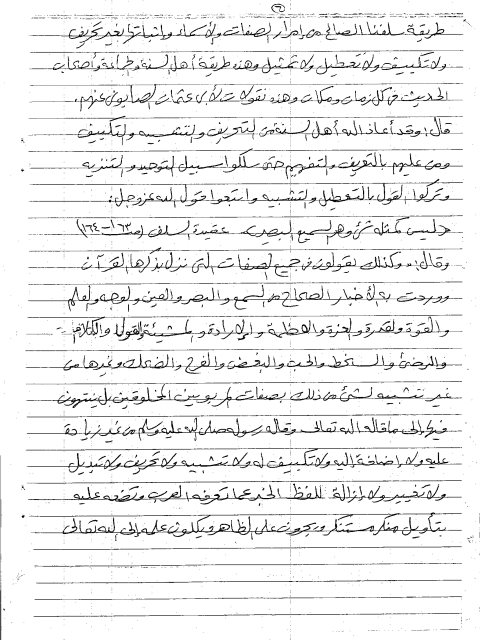 (٦)
طريقة سلفنا الصالح من إمرار الصفات والأسماء وإثباتها بغير تحريف
ولا تكييف ولا تعطيل ولا تمثيل وهذه طريقة أهل السنة والجماعة وأصحاب
الحديث في كل زمان ومكان وهذه نقولات لأبي عثمان الصابوني عنهم.
قال: وقد أعاذ الله أهل السنة من التحريف والتشبيه والتكييف
ومن عليهم بالتعريف والتفهيم حتى سلكوا سبيل التوحيد والتنزيه
وتركوا القول بالتعطيل والتشبيه واتبعوا قول الله عز وجل:
﴿ليس كمثله شئ وهو السميع البصير﴾ عقيدة السلف (ص ١٦٣-١٦٤)
وقال: وكذلك يقولون في جميع الصفات التي نزل بذكرها القرآن
ووردت به الأخبار الصحاح من السمع والبصر والعين والوجه والعلم
والقوة والقدرة والعزة والعظمة والإرادة والمشيئة والقول والكلام
والرضى والسخط والحب والبغض والفرح والضحك وغيرها من
غير تشبيه لشئ من ذلك بصفات المربوبين المخلوقين بل ينتهون
فيها إلى ما قاله الله تعالى وقاله رسوله صلى الله عليه وسلم من غير زيادة
عليه ولا إضافة إليه ولا تكييف له ولا تشبيه ولا تحريف ولا تبديل
ولا تغيير ولا إزالة للفظ الخبر عما تعرفه العرب وتضعه عليه
بتأويل منكر مستنكر ويجرون على الظاهر ويكلون علمه إلى الله تعالى